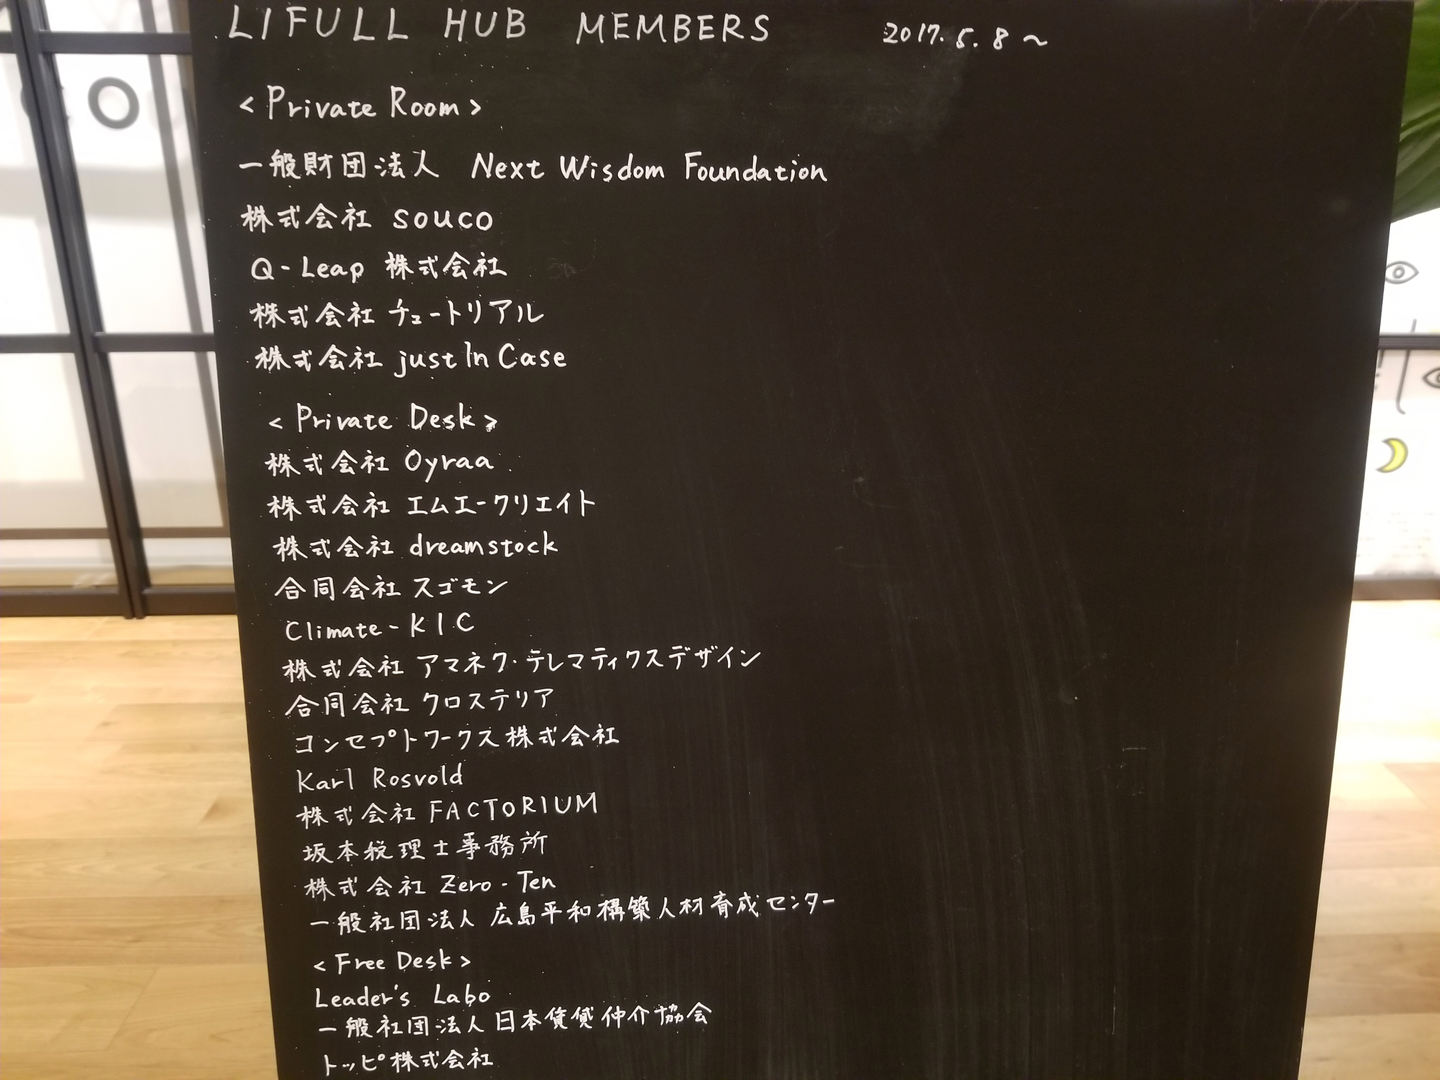 LIFULL HUB MEMBERS 2017.5.8～
<Private Room>
一般財団法人 Next Wisdom Foundation
株式会社 souco
Q-Leap 株式会社
株式会社 チュートリアル
株式会社 justInCase
<Private Desk>
株式会社 Oyraa
株式会社 エムエークリエイト
株式会社 dreamstock
合同会社 スゴモン
Climate-KIC
株式会社 アマネク・テレマティクスデザイン
合同会社 クロステリア
コンセプトワークス株式会社
Karl Rosvold
株式会社 FACTORIUM
坂本税理士事務所
株式会社 Zero-Ten
一般社団法人 広島平和構築人材育成センター
<Free Desk>
Leader's Labo
一般社団法人日本賃貸仲介協会
トッピ株式会社